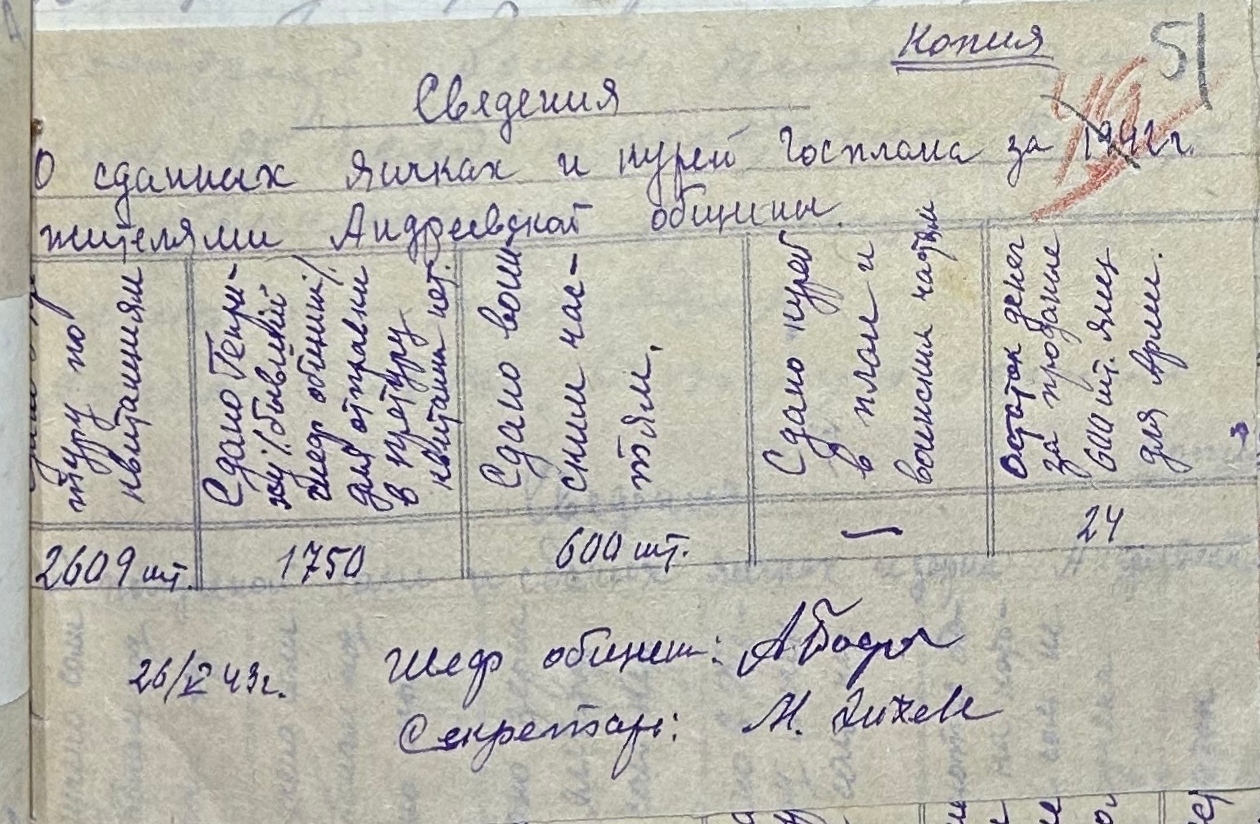 Копия
51
Сведения
О сданных яичках и курей Госплана за 1942 г.
жителями Андреевской общины.
туру по
квитанциям
Сдано Генри-
ху /бывший
шеф общины/
для отправки
в культуру
квитанц. нет.
Сдано воин-
ским час-
тям.
Сдано курей
в план и
воинским частям
Остаток денег
за проданные
600 шт. яиц
для Арми.
2609 шт.
1750
600 шт.
—
24
26/V 43 г.
Шеф общины:
Секретарь: М.